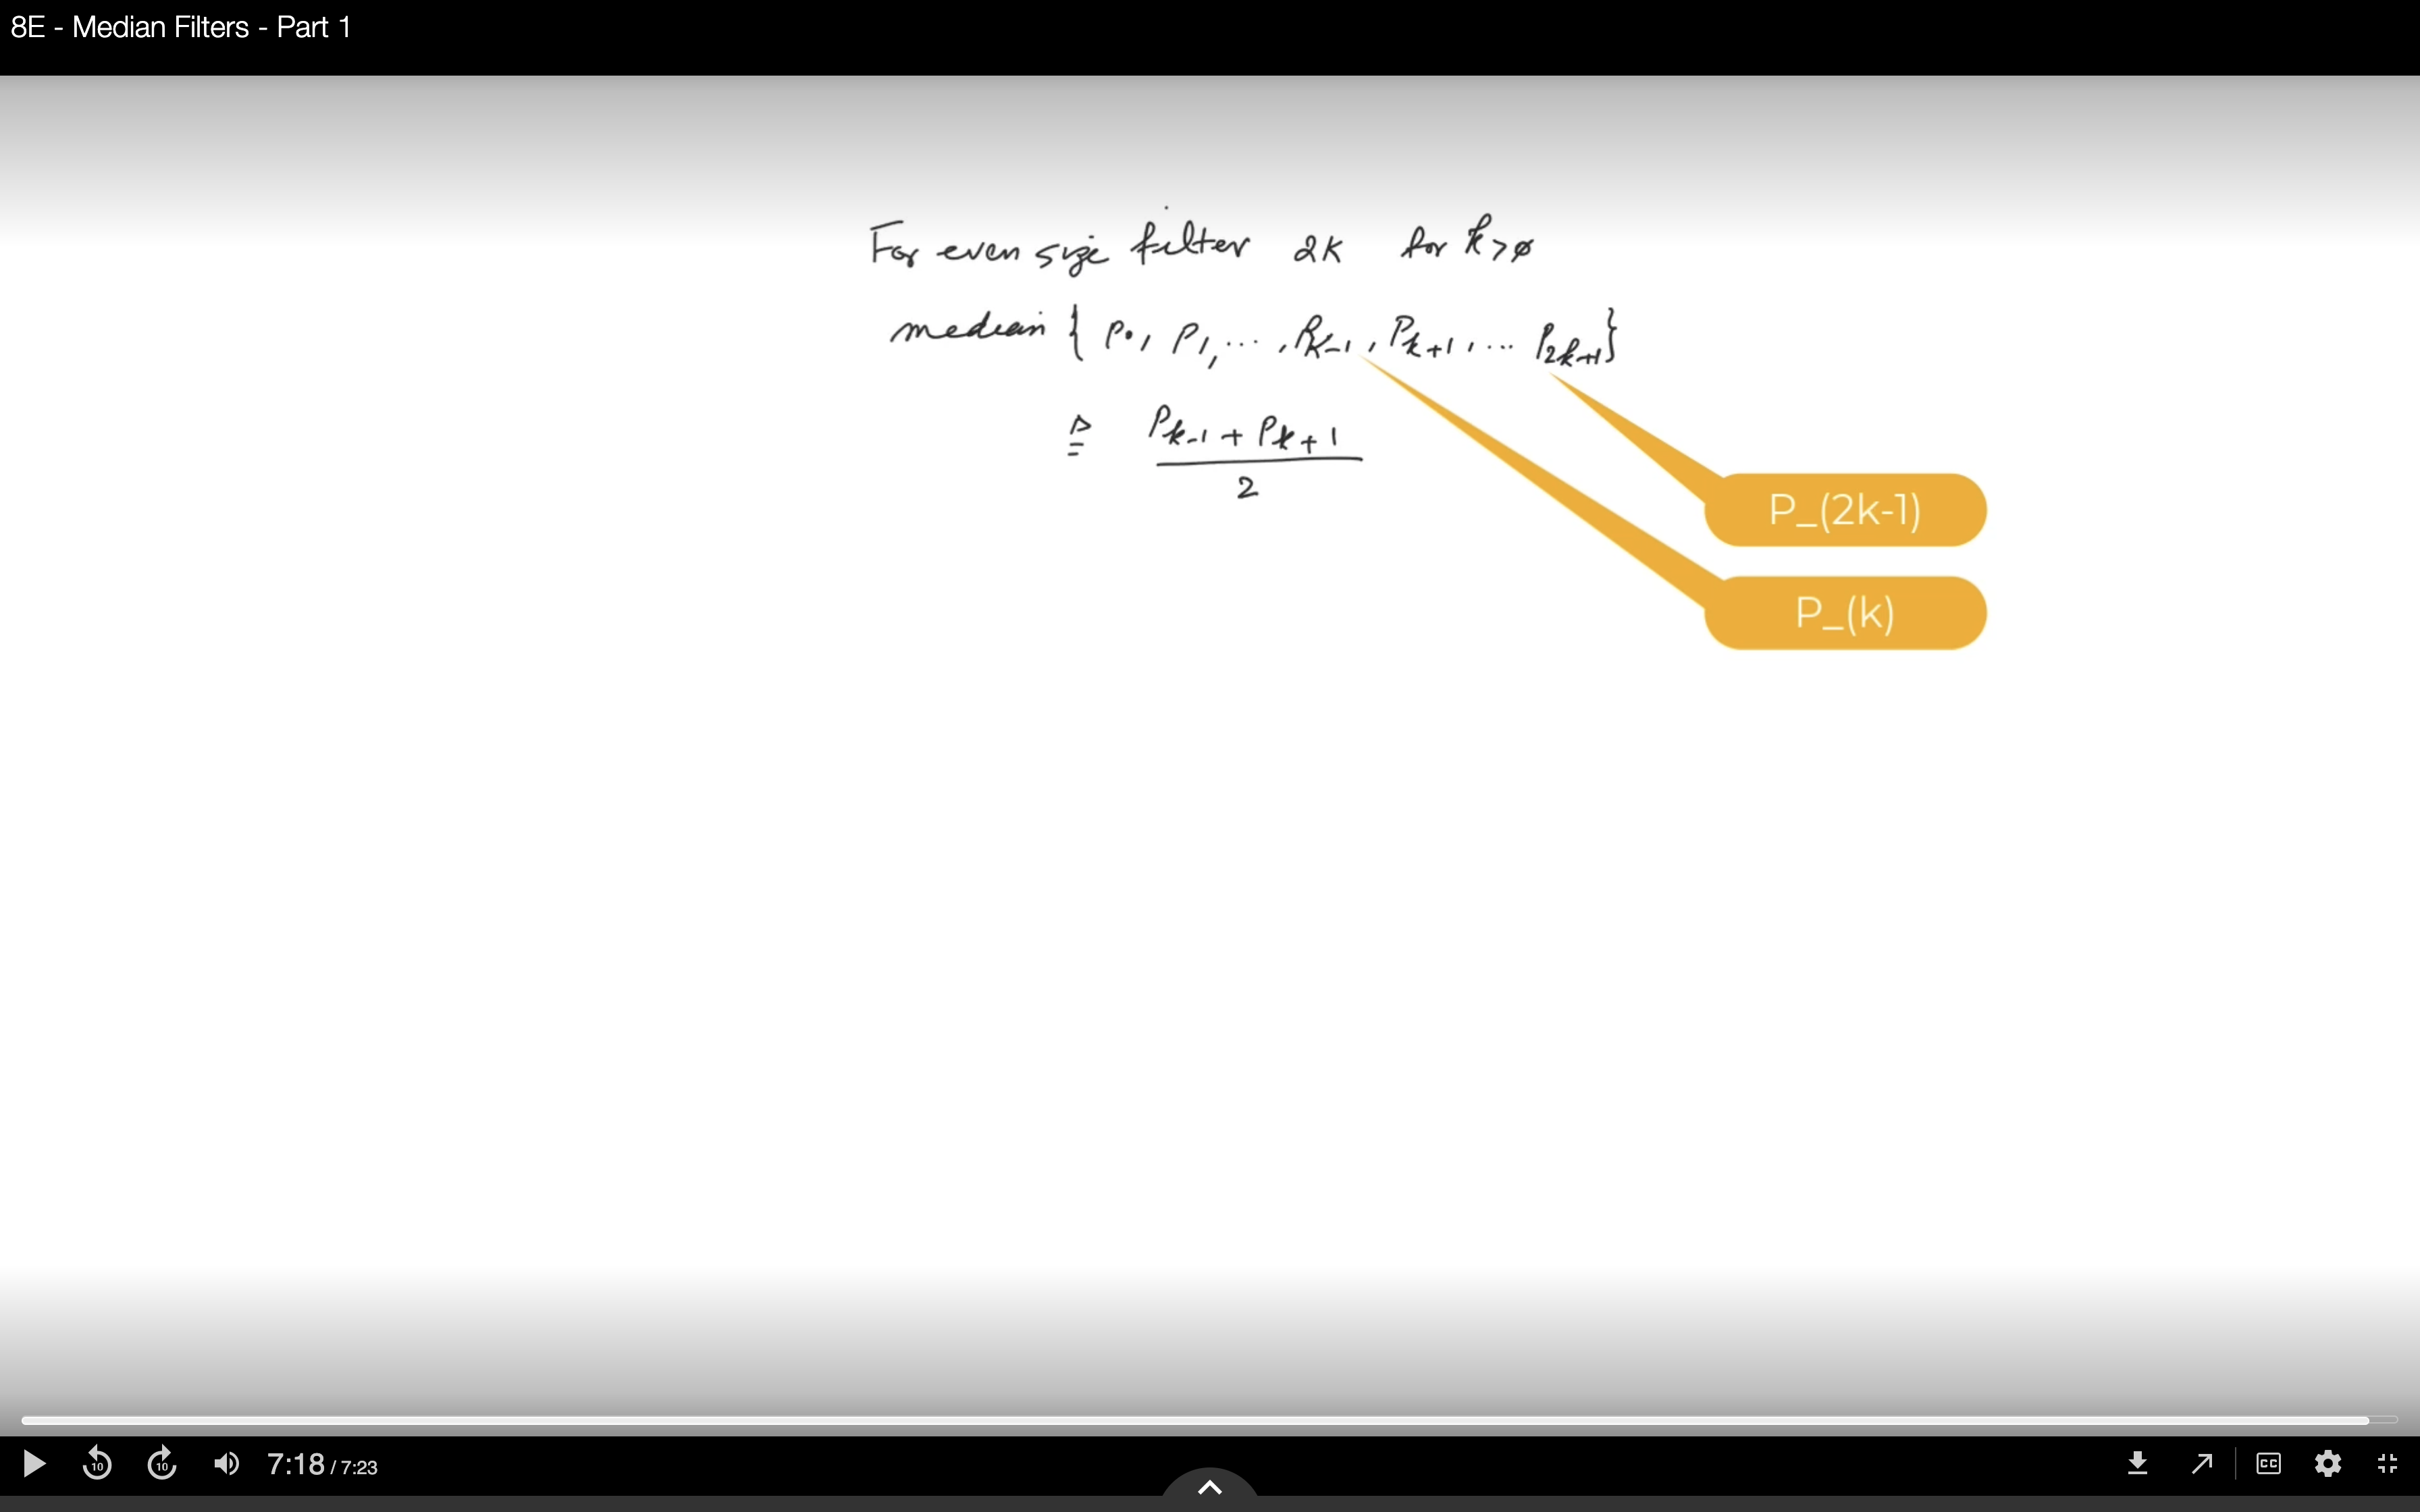 8E - Median Filters - Part 1
For even size filter 2K for k>0
median { p0, p1, ..., pk-1, pk+1, ... p2k+1}
≜ pk-1 + pk+1
2
P_(2k-1)
P_(k)
10 10 7:18 / 7:23 CC